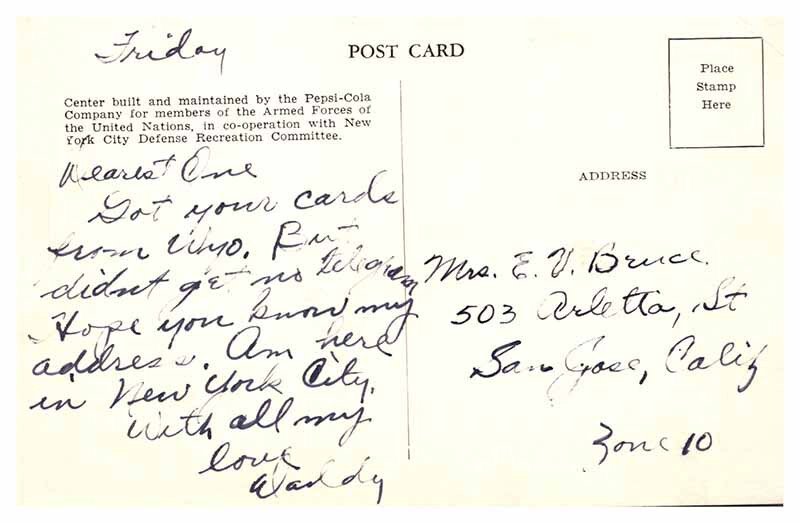 Friday
POST CARD
Place
Stamp
Here
Center built and maintained by the Pepsi-Cola
Company for members of the Armed Forces of
the United Nations, in co-operation with New
York City Defense Recreation Committee.
Dearest One
Got your cards
from Wyo. But
didnt get no telegram
Hope you know my
address. Am here
in New York City.
With all my
love
Daddy
ADDRESS
Mrs. E. V. Bruce.
503 Arletta, St
San Jose, Calif
Zone 10